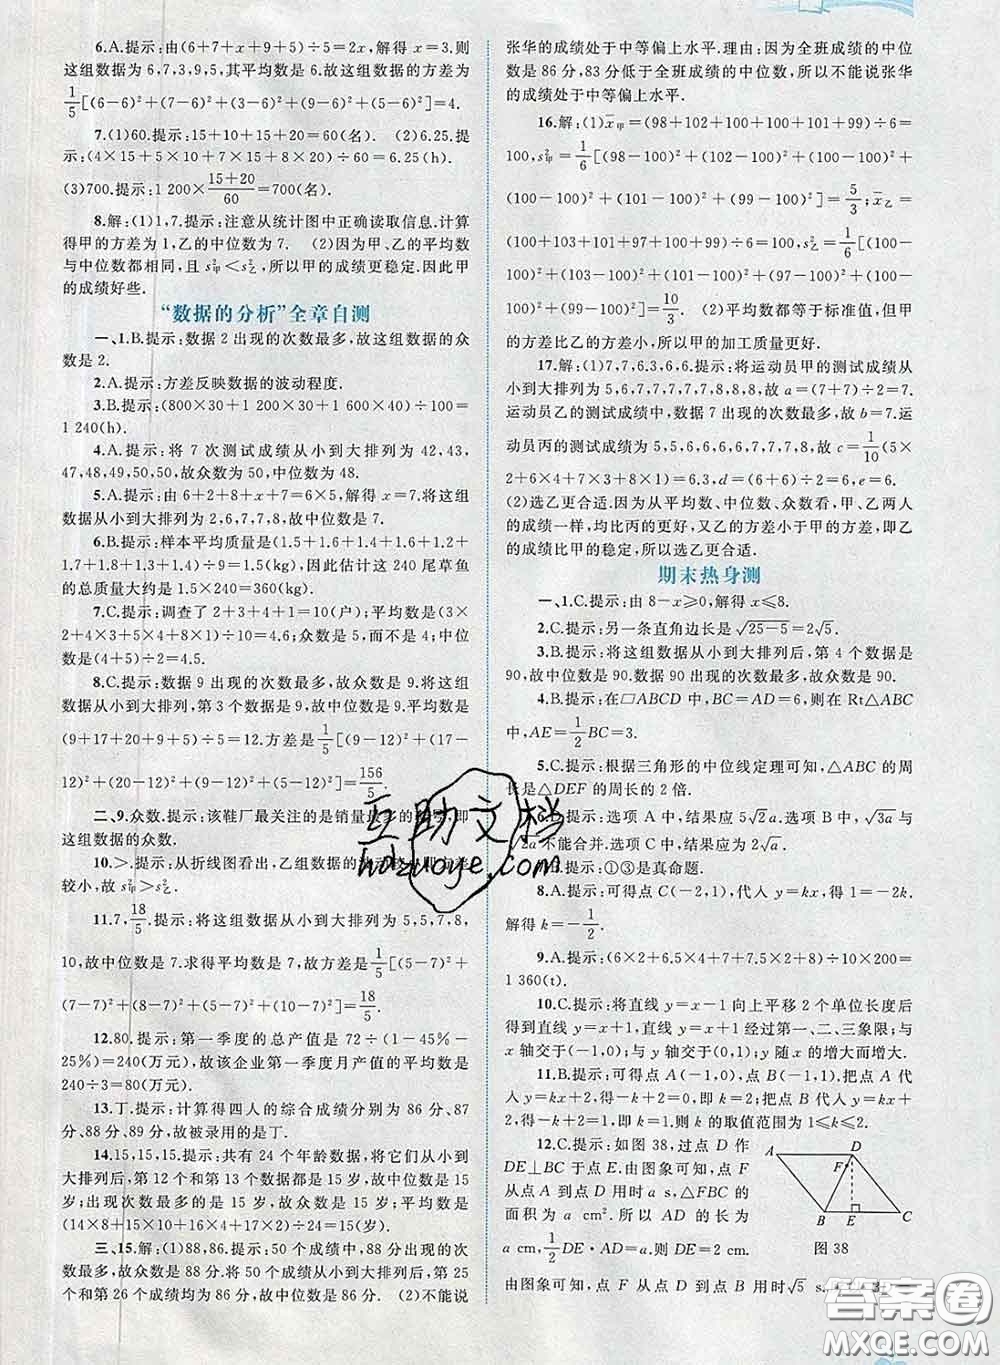 6.A.提示:由(6+7+x+9+5)÷5=2x,解得 x=3.则
这组数据为 6,7,3,9,5,其平均数是 6.故这组数据的方差为
1/5[(6-6)²+(7-6)²+(3-6)²+(9-6)²+(5-6)²]=4.
7.(1)60.提示:15+10+15+20=60(名). (2)6.25.提
示:(4×15+5×10+7×15+8×20)÷60=6.25(h).
(3)700.提示:1 200×(15+20)/60=700(名).
8.解:(1)1,7.提示:注意从统计图中正确读取信息.计算
得甲的方差为 1,乙的中位数为 7. (2)因为甲、乙的平均数
与中位数都相同,且 s²甲<s²乙,所以甲的成绩更稳定.因此甲
的成绩好些.
“数据的分析”全章自测
一、1.B.提示:数据 2 出现的次数最多,故这组数据的众
数是 2.
2.A.提示:方差反映数据的波动程度.
3.B.提示:(800×30+1 200×30+1 600×40)÷100=
1 240(h).
4.A.提示:将 7 次测试成绩从小到大排列为 42,43,
47,48,49,50,50,故众数为 50,中位数为 48.
5.A.提示:由 6+2+8+x+7=6×5,解得 x=7.将这组
数据从小到大排列为 2,6,7,7,8,故中位数是 7.
6.B.提示:样本平均质量是(1.5+1.6+1.4+1.6+1.2+
1.7+1.5+1.8+1.4)÷9=1.5(kg),因此估计这 240 尾草鱼
的总质量大约是 1.5×240=360(kg).
7.C.提示:调查了 2+3+4+1=10(户);平均数是(3×
2+4×3+5×4+8×1)÷10=4.6;众数是 5,而不是 4;中位
数是(4+5)÷2=4.5.
8.C.提示:数据 9 出现的次数最多,故众数是 9.将这组
数据从小到大排列,第 3 个数据是 9,故中位数是 9.平均数是
(9+17+20+9+5)÷5=12.方差是 1/5[(9-12)²+(17-
12)²+(20-12)²+(9-12)²+(5-12)²]=156/5.
二、9.众数.提示:该鞋厂最关注的是销量最多的 即
这组数据的众数.
10.>.提示:从折线图看出,乙组数据的
较小,故 s²甲>s²乙.
11.7,18/5.提示:将这组数据从小到大排列为 5,5,7,8,
10,故中位数是 7.求得平均数是 7,故方差是 1/5[(5-7)²+
(7-7)²+(5-7)²+(8-7)²+(10-7)²]=18/5.
12.80.提示:第一季度的总产值是 72÷(1-45%-
25%)=240(万元),故该企业第一季度月产值的平均数是
240÷3=80(万元).
13.丁.提示:计算得四人的综合成绩分别为 86分、87
分、88分、89分,故被录用的是丁.
14.15,15,15.提示:共有 24 个年龄数据,将它们从小到
大排列后,第 12 个和第 13 个数据都是 15 岁,故中位数是 15
岁;出现次数最多的是 15 岁,故众数是 15 岁;平均数是
(14×8+15×10+16×4+17×2)÷24=15(岁).
三、15.解:(1)88,86.提示:50 个成绩中,88 分出现的次
数最多,故众数是 88 分.将 50 个成绩从小到大排列后,第 25
个和第 26 个成绩均为 86 分,故中位数是 86 分. (2)不能说
张华的成绩处于中等偏上水平.理由:因为全班成绩的中位
数是 86 分,83 分低于全班成绩的中位数,所以不能说张华
的成绩处于中等偏上水平.
16.解:(1)x̄甲=(98+102+100+100+101+99)÷6=
100,s²甲=1/6[(98-100)²+(102-100)²+(100-100)²+
(100-100)²+(101-100)²+(99-100)²]=5/3;x̄乙=
(100+103+101+97+100+99)÷6=100,s²乙=1/6[(100-
100)²+(103-100)²+(101-100)²+(97-100)²+(100-
100)²+(99-100)²]=10/3. (2)平均数都等于标准值,但甲
的方差比乙的方差小,所以甲的加工质量更好.
17.解:(1)7,7,6.3,6,6.提示:将运动员甲的测试成绩从
小到大排列为 5,6,7,7,7,7,7,8,8,8,故 a=(7+7)÷2=7.
运动员乙的测试成绩中,数据 7 出现的次数最多,故 b=7.运
动员丙的测试成绩为 5,5,6,6,6,6,7,7,7,8,故 c=1/10(5×
2+6×4+7×3+8×1)=6.3,d=(6+6)÷2=6,e=6.
(2)选乙更合适.因为从平均数、中位数、众数看,甲、乙两人
的成绩一样,均比丙的更好,又乙的方差小于甲的方差,即乙
的成绩比甲的稳定,所以选乙更合适.
期末热身测
一、1.C.提示:由 8-x≥0,解得 x≤8.
2.C.提示:另一条直角边长是√(25-5)=2√5.
3.B.提示:将这组数据从小到大排列后,第 4 个数据是
90,故中位数是 90.数据 90 出现的次数最多,故众数是 90.
4.B.提示:在□ABCD 中,BC=AD=6,则在 Rt△ABC
中,AE=1/2BC=3.
5.C.提示:根据三角形的中位线定理可知,△ABC 的周
长是△DEF 的周长的 2 倍.
6. 提示:选项 A 中,结果应为 5√2a.选项 B 中,√3a与
√2a不能合并.选项 C 中,结果应为 2√a.
7.B.提示:①③是真命题.
8.A.提示:可得点 C(-2,1),代入 y=kx,得 1=-2k.
解得 k=-1/2.
9.A.提示:(6×2+6.5×4+7×1+7.5×2+8×1)÷10×200=
1 360(t).
10.C.提示:将直线 y=x-1 向上平移 2 个单位长度后
得到直线 y=x+1,直线 y=x+1 经过第一、二、三象限;与
x 轴交于(-1,0);与 y 轴交于(0,1);y 随 x 的增大而增大.
11.B.提示:可得点 A(-1,0),点 B(-1,1).把点 A 代
入 y=kx+2,得-k+2=0,即 k=2;把点 B 代入 y=kx+2,
得-k+2=1,即 k=1.则 k 的取值范围为 1≤k≤2.
12.C.提示:如图 38,过点 D 作
DE⊥BC 于点 E.由图象可知,点 F
从点 A 到点 D 用时 a s,△FBC 的
面积为 a cm².故 AD 的长为
a cm,1/2DE·AD=a.则 DE=2 cm.
由图象可知,点 F 从点 D 到点 B 用时√5 s.
A D F B E C
图 38
互助文档
hdzuoye.com
答案圈
MXQE.COM